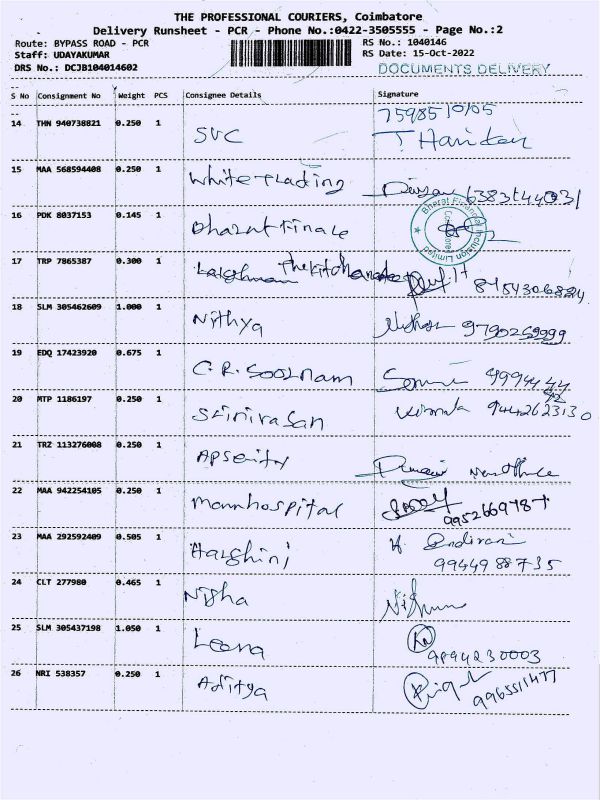 THE PROFESSIONAL COURIERS, Coimbatore
Delivery Runsheet - PCR - Phone No.:0422-3505555 - Page No.:2
Route: BYPASS ROAD - PCR RS No.: 1040146
Staff: UDAYAKUMAR RS Date: 15-Oct-2022
DRS No.: DCJB104014602 DOCUMENTS DELIVERY
S No Consignment No Weight PCS Consignee Details Signature
14 THN 940738821 0.250 1 SVC
15 MAA 568594408 0.250 1 White Trading
16 PDK 8037153 0.145 1 Bharat Finace
Bharat Financial Inclusion Limited
17 TRP 7865387 0.300 1 Lakshman
18 SLM 305462609 1.000 1 Nithya 9790259999
19 EDQ 17423920 0.675 1 C.R. 9994444
20 MTP 1186197 0.250 1 Srinivasan 9442623130
21 TRZ 113276008 0.250 1
22 MAA 942254105 0.250 1 Mannhospital
23 MAA 292592409 0.505 1 Harshini 9944988735
24 CLT 277980 0.465 1 Nisha
25 SLM 305437198 1.050 1 Leena 9894230003
26 NRI 538357 0.250 1 Aditya